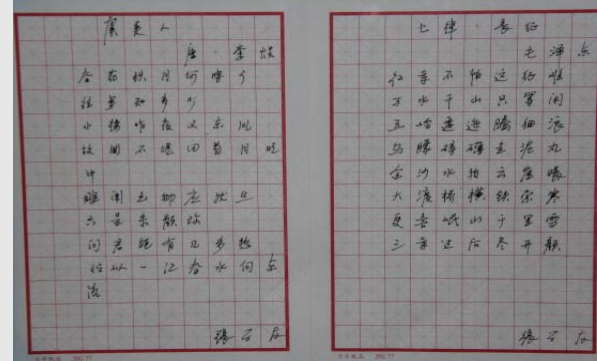 虞美人
唐·李煜
春花秋月何时了
往事知多少
小楼昨夜又东风
故国不堪回首月明
中
雕阑玉砌应然在
只是朱颜改
问君能有几多愁
恰似一江春水向东
流
七律·长征
毛泽东
红军不怕远征难
万水千山只等闲
五岭逶迤腾细浪
乌蒙磅礴走泥丸
金沙水拍云崖暖
大渡桥横铁索寒
更喜岷山千里雪
三军过后尽开颜